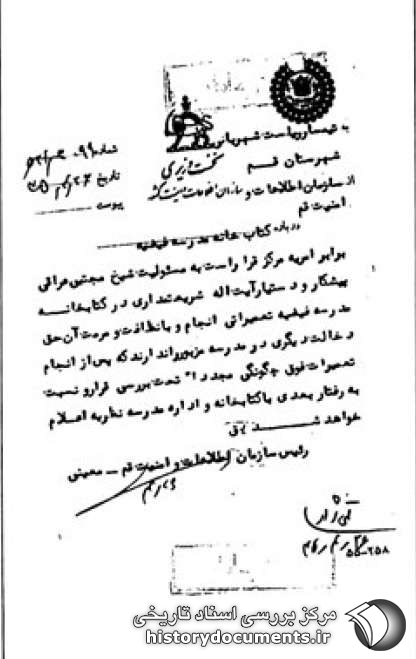 به تیمسار ریاست شهربانی
شهرستان قم
نخست وزیری
سازمان اطلاعات و امنیت کشور
شماره
تاریخ
پیوست
از سازمان اطلاعات و
امنیت قم
درباره کتابخانه مدرسه فیضیه
برابر امریه مرکز قرار است به مسئولیت شیخ مجتبی عراقی
پیشکار و دستیار آیت اله شریعتمداری در کتابخانه
مدرسه فیضیه تعمیراتی انجام و با نظافت و مرمت آن حق
دخالت دیگری در مدرسه مزبور ندارند که پس از انجام
تعمیرات فوق چگونگی مجددا" تحت بررسی قرار و نسبت
به رفتار بعدی با کتابخانه و اداره مدرسه نظریه اعلام
خواهد شد
رئیس سازمان اطلاعات و امنیت قم - معینی
مرکز بررسی اسناد تاریخی
historydocuments.ir